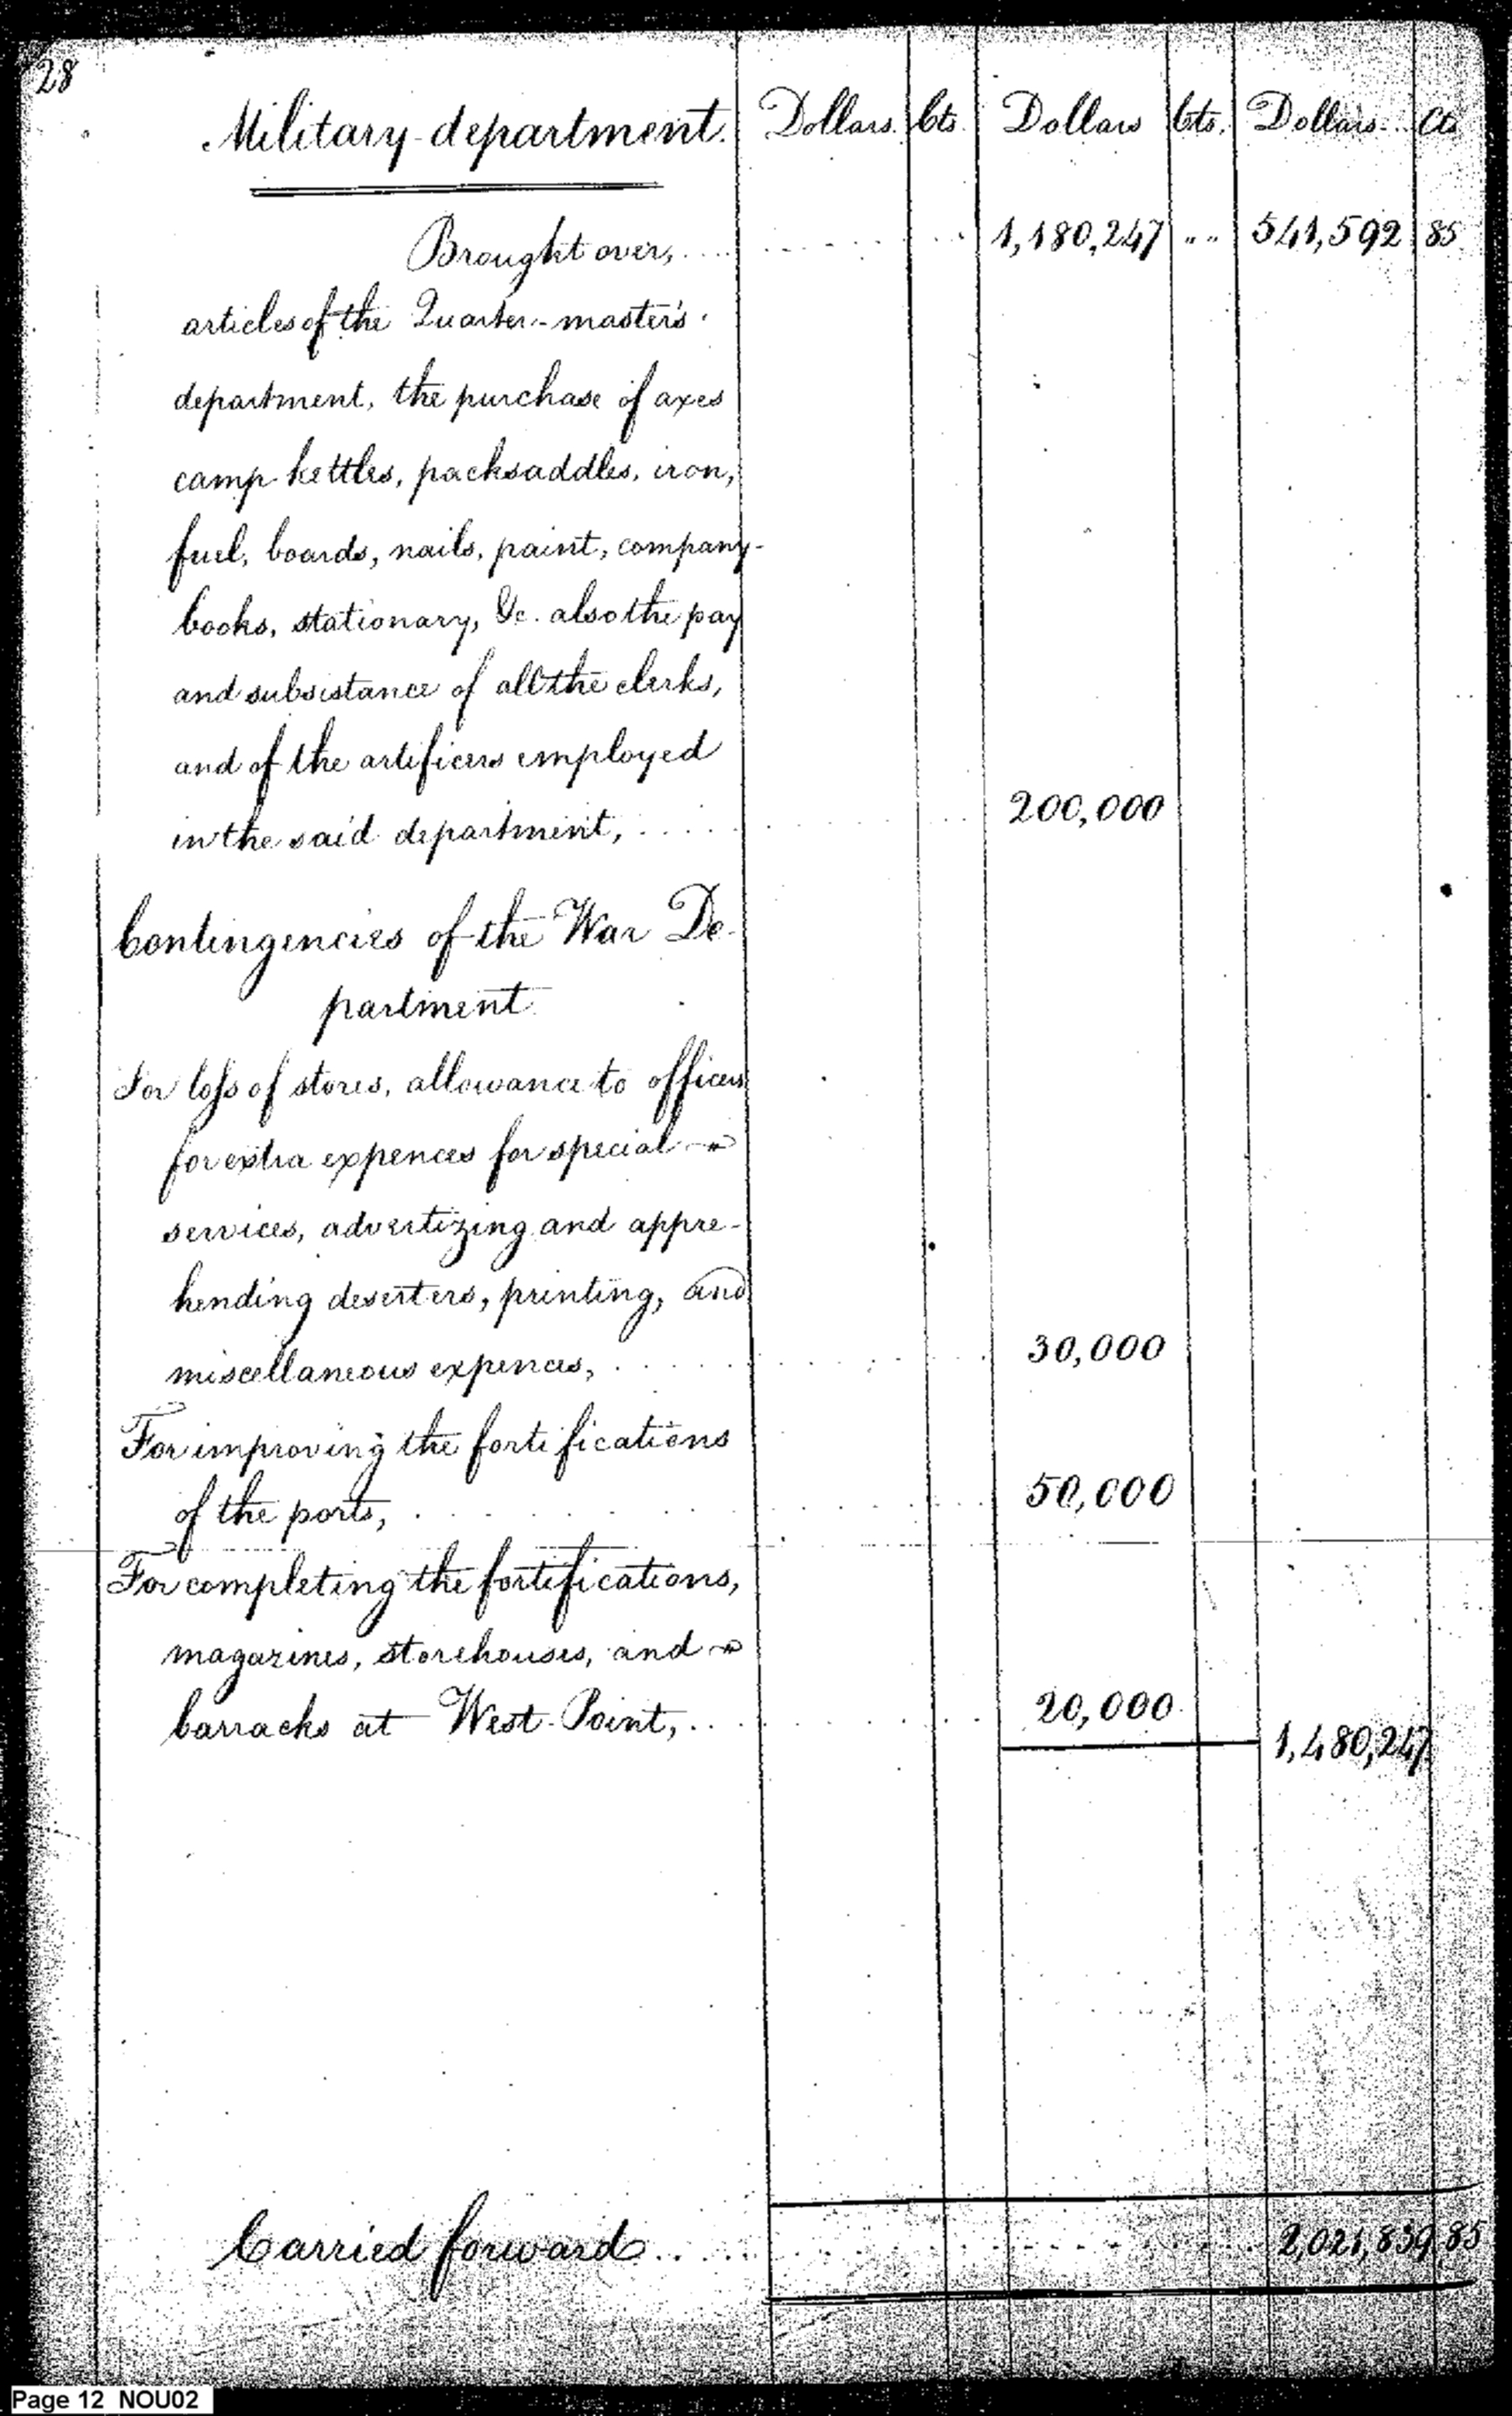 28
Military department. Dollars. Cts. Dollars Cts. Dollars. Cts
Brought over, .... 1,180,247 " " 541,592 85
articles of the Quarter-master's
department, the purchase of axes
camp kettles, packsaddles, iron,
fuel, boards, nails, paint, company-
books, stationary, &c. also the pay
and subsistance of all the clerks,
and of the artificers employed
in the said department, .... 200,000
Contingencies of the War De-
partment.
For loss of stores, allowance to officers
for extra expences for special
services, advertizing and appre-
hending deserters, printing, and
miscellaneous expences, .... 30,000
For improving the fortifications
of the ports, .... 50,000
For completing the fortifications,
magazines, storehouses, and
barracks at West-Point, .... 20,000
1,480,247
Carried forward .... 2,021,839 85
Page 12 NOU02